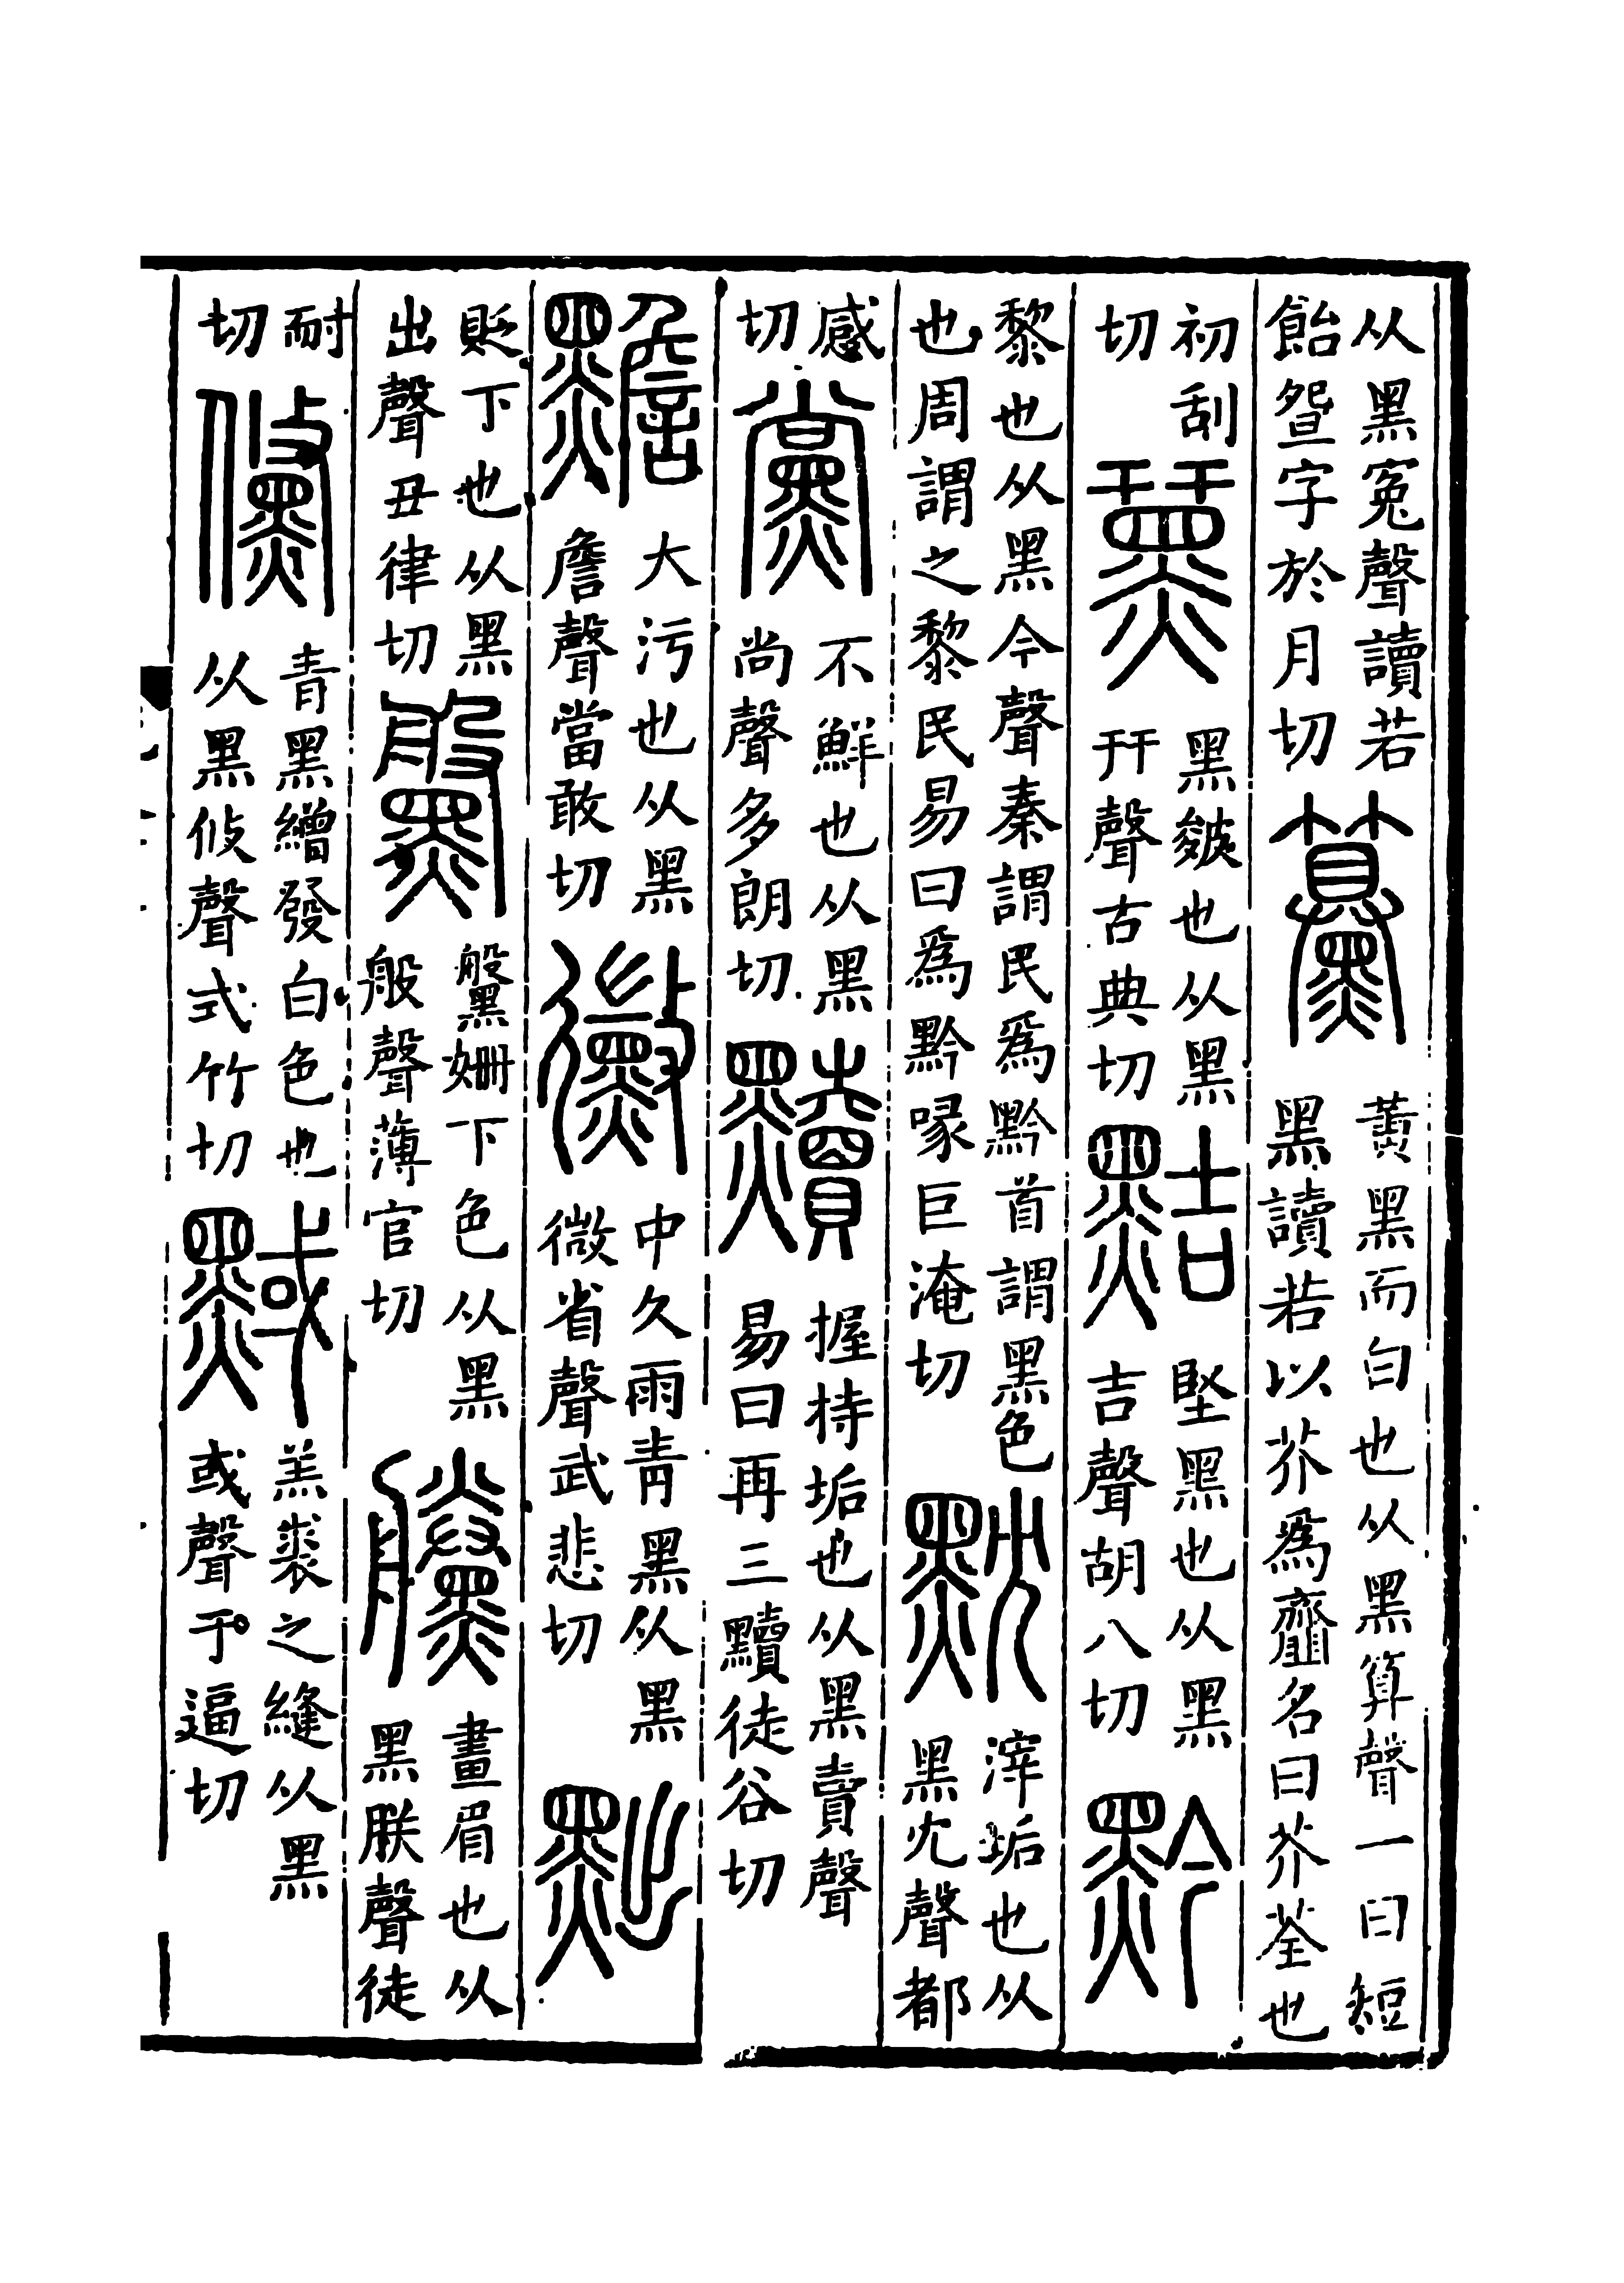 从黑冤聲讀若
飴𧯡字於月切
黃黑而白也从黑算聲一曰短
黑讀若以芥爲齏名曰芥荃也
初刮
切
䵤
黑皴也从黑
幵聲古典切
黠
堅黑也从黑
吉聲胡八切
黔
黎也从黑今聲秦謂民爲黔首謂黑色
也周謂之黎民易曰爲黔喙巨淹切
黕
滓垢也从
黑冘聲都
感
切
黨
不鮮也从黑
尚聲多朗切
黷
握持垢也从黑賣聲
易曰再三黷徒谷切
黵
大污也从黑
詹聲當敢切
黴
中久雨青黑从黑
微省聲武悲切
黜
貶下也从黑
出聲丑律切
𪒀
𪒀姍下色从黑
般聲薄官切
黱
畫眉也从
黑朕聲徒
耐
切
儵
青黑繒發白色也
从黑攸聲式竹切
䵧
羔裘之縫从黑
或聲于逼切